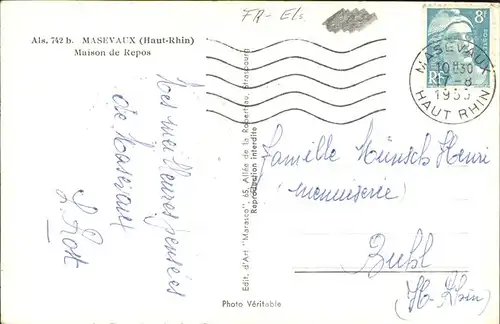 Als. 742 b. MASEVAUX (Haut-Rhin)
Maison de Repos
FR-Els.
8F
POSTES
RF
MASEVAUX
10H30
-8
1953
HAUT RHIN
Nos meilleures pensées
de Masevaux
L. Rost
Edit. d'Art "Marasco", 65, Allée de la Robertsau, Strasbourg
Reproduction interdite
Famille Münsch Henri
(menuiserie)
Buhl
(Ht-Rhin)
Photo Véritable